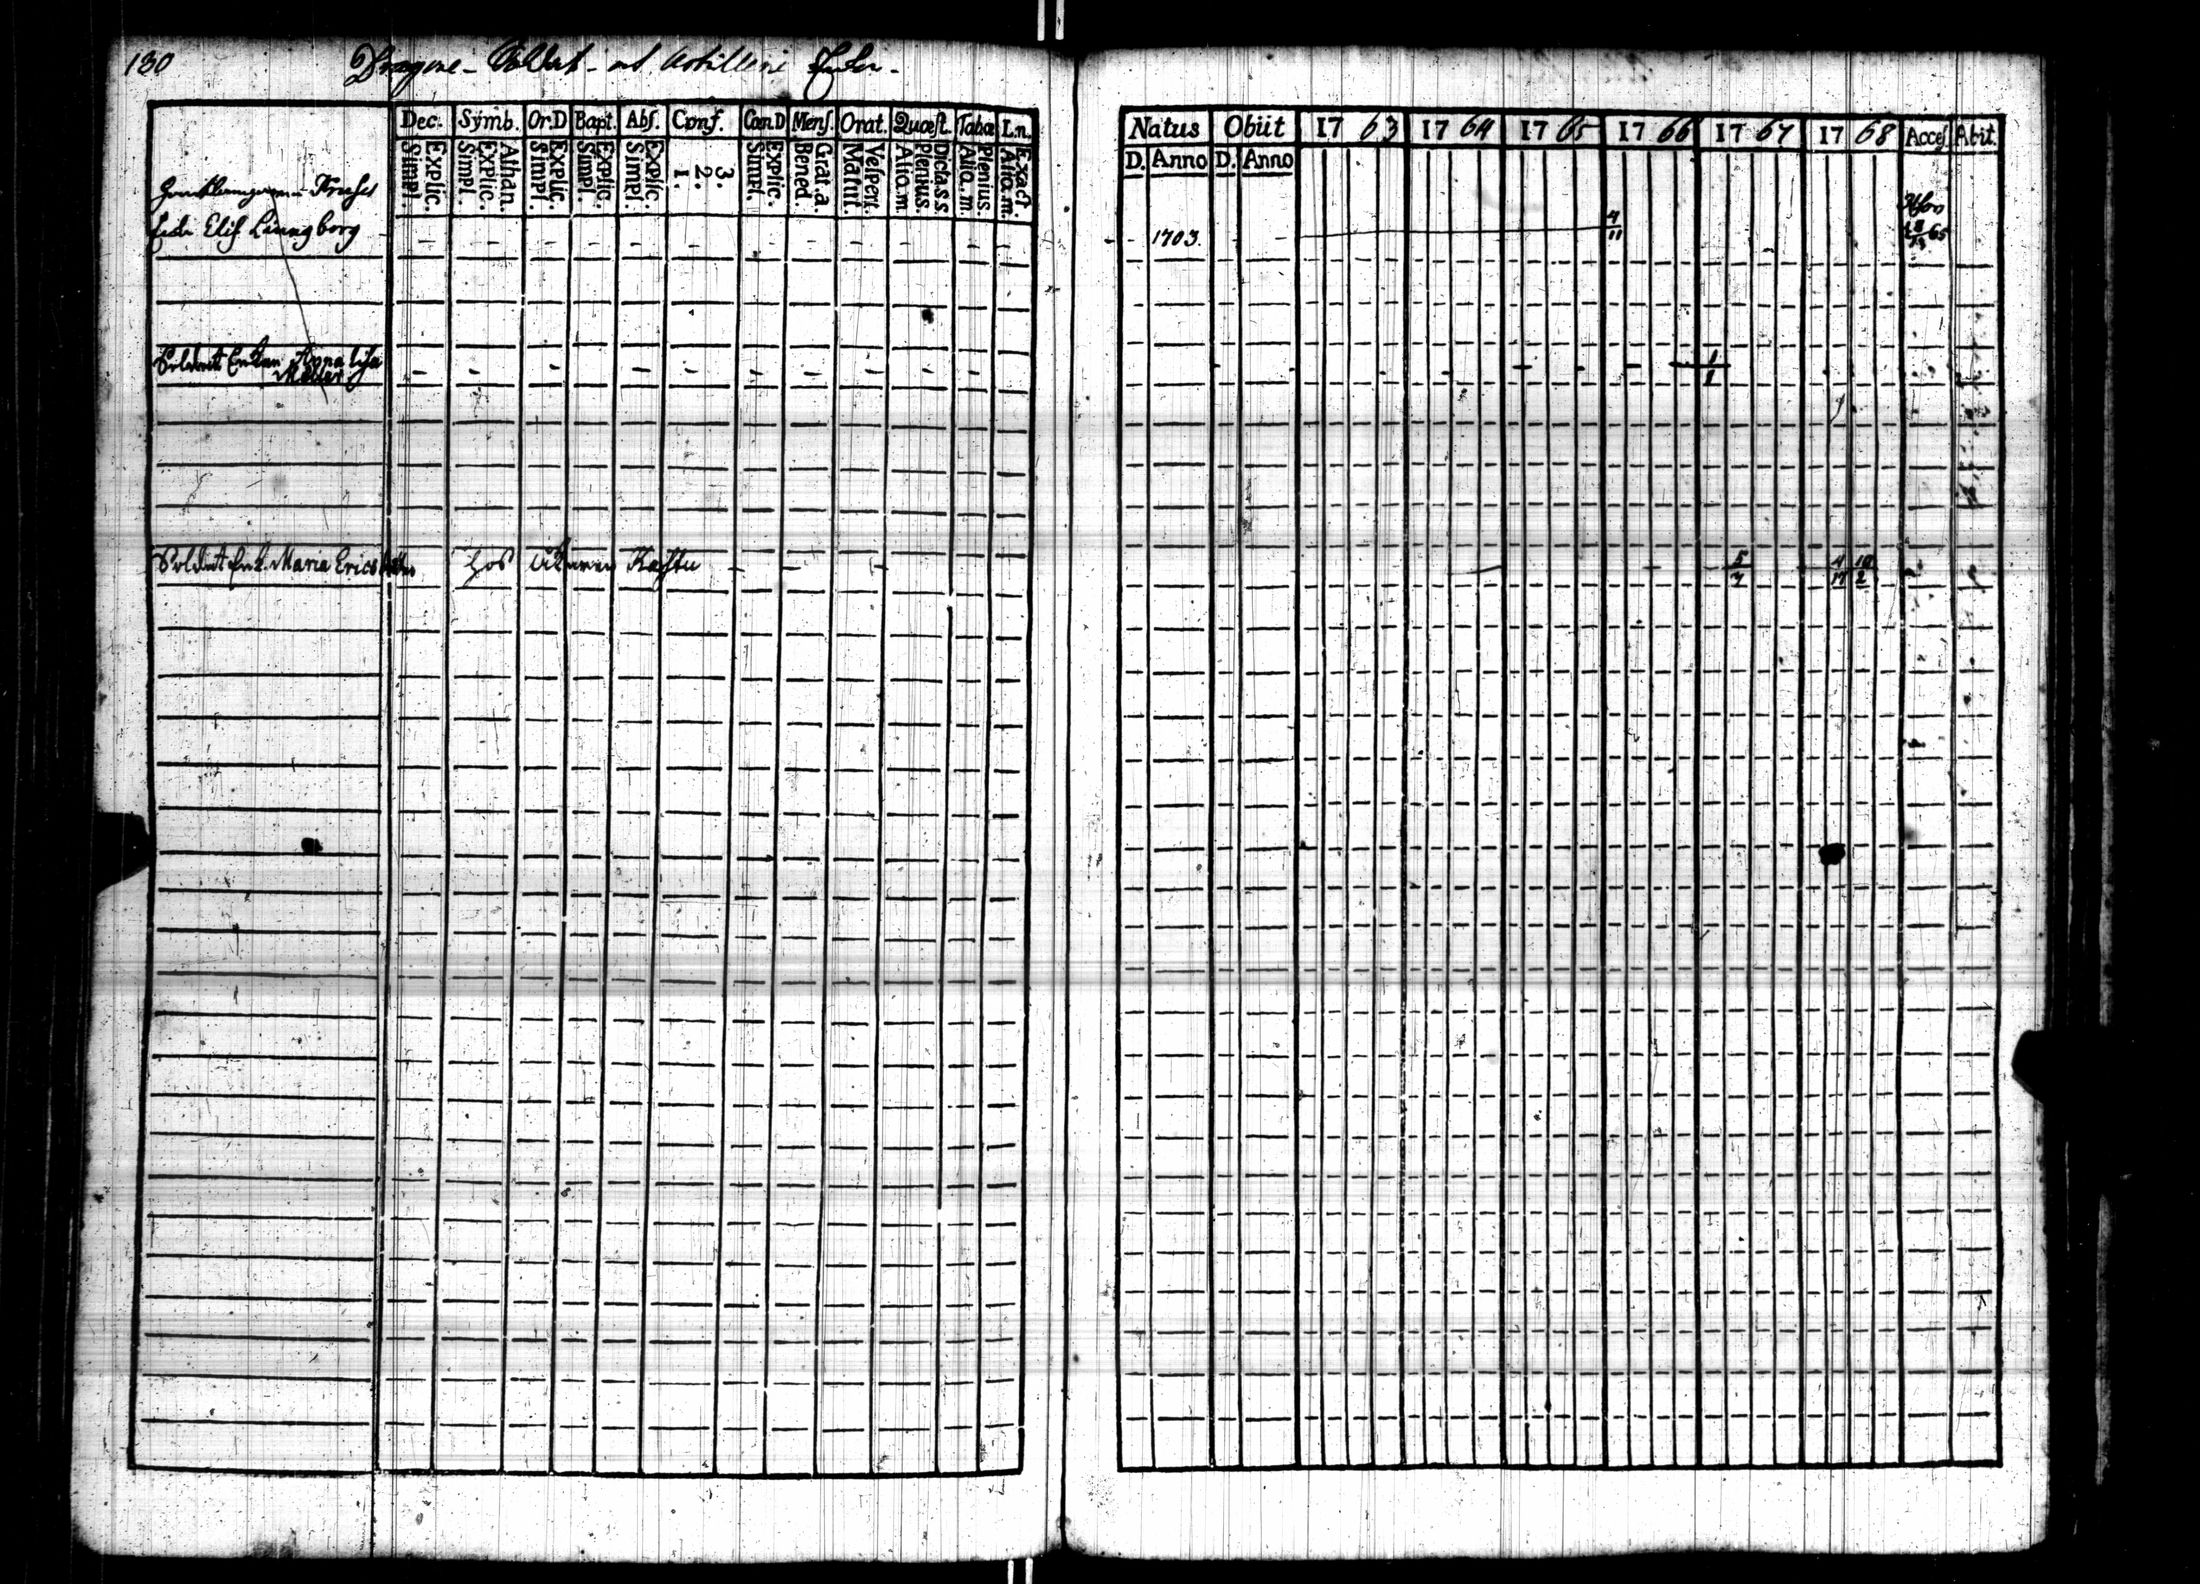 130
Dragone- Soldat- och Artilleri Enkor.
Dec. Symb. Or.D Bapt. Abs. Conf. Cœn.D Mens. Orat. Quæst. Tabæ I.n.
Explic. Simpl. Athan. Explic. Simpl. Explic. Simpl. Explic. Simpl. Explic. Simpl. 3. 2. 1. Explic. Simpl. Grat.a. Bened. Vespert. Matut. Dicta.s.s. Plenius. Alio.m. Plenius. Alio.m. Exact. Alio.m.
Enka Elis Liungborg
Soldat Enkan Anna Lisa
Möller
Soldat Enk. Maria Ericsdotter hos
Natus Obiit 1763 1764 1765 1766 1767 1768 Acces. Abit.
D. Anno D. Anno
1703. 4/11 65
1/1
5/7 4/17 10/2